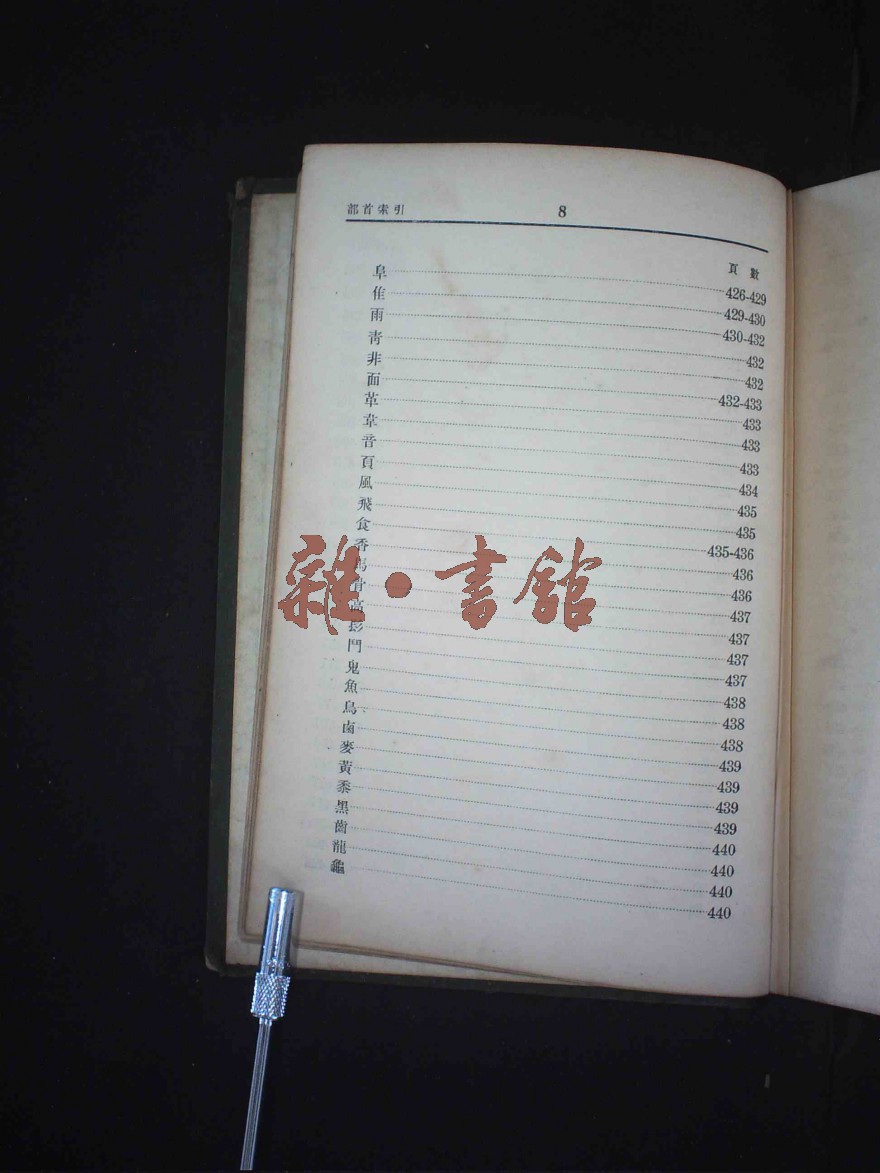 部首索引 8
頁數
阜 426-429
隹 429-430
雨 430-432
靑 432
非 432
面 432-433
革 433
韋 433
音 433
頁 434
風 435
飛 435
食 435-436
香 436
馬 436
骨 437
高 437
髟 437
鬥 437
鬼 438
魚 438
鳥 438
鹵 439
麥 439
黃 439
黍 439
黑 440
齒 440
龍 440
龜 440
雜·書館